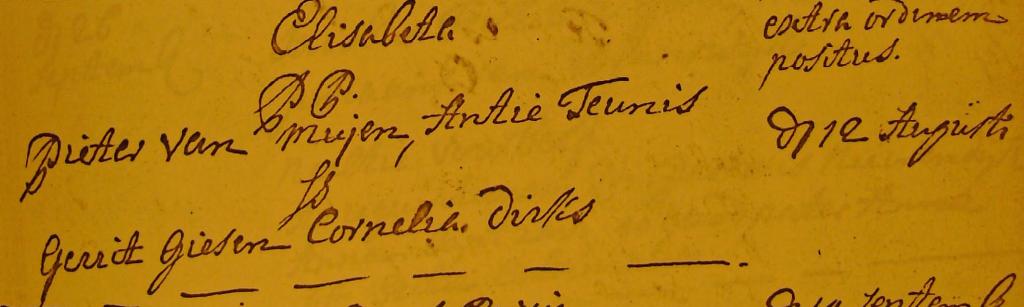 Elisabeta extra ordinem
positus.
P P.
Pieter van Muijen, Antie Teunis d 12 Augusti
SS
Gerrit Giesen Cornelia Dirks